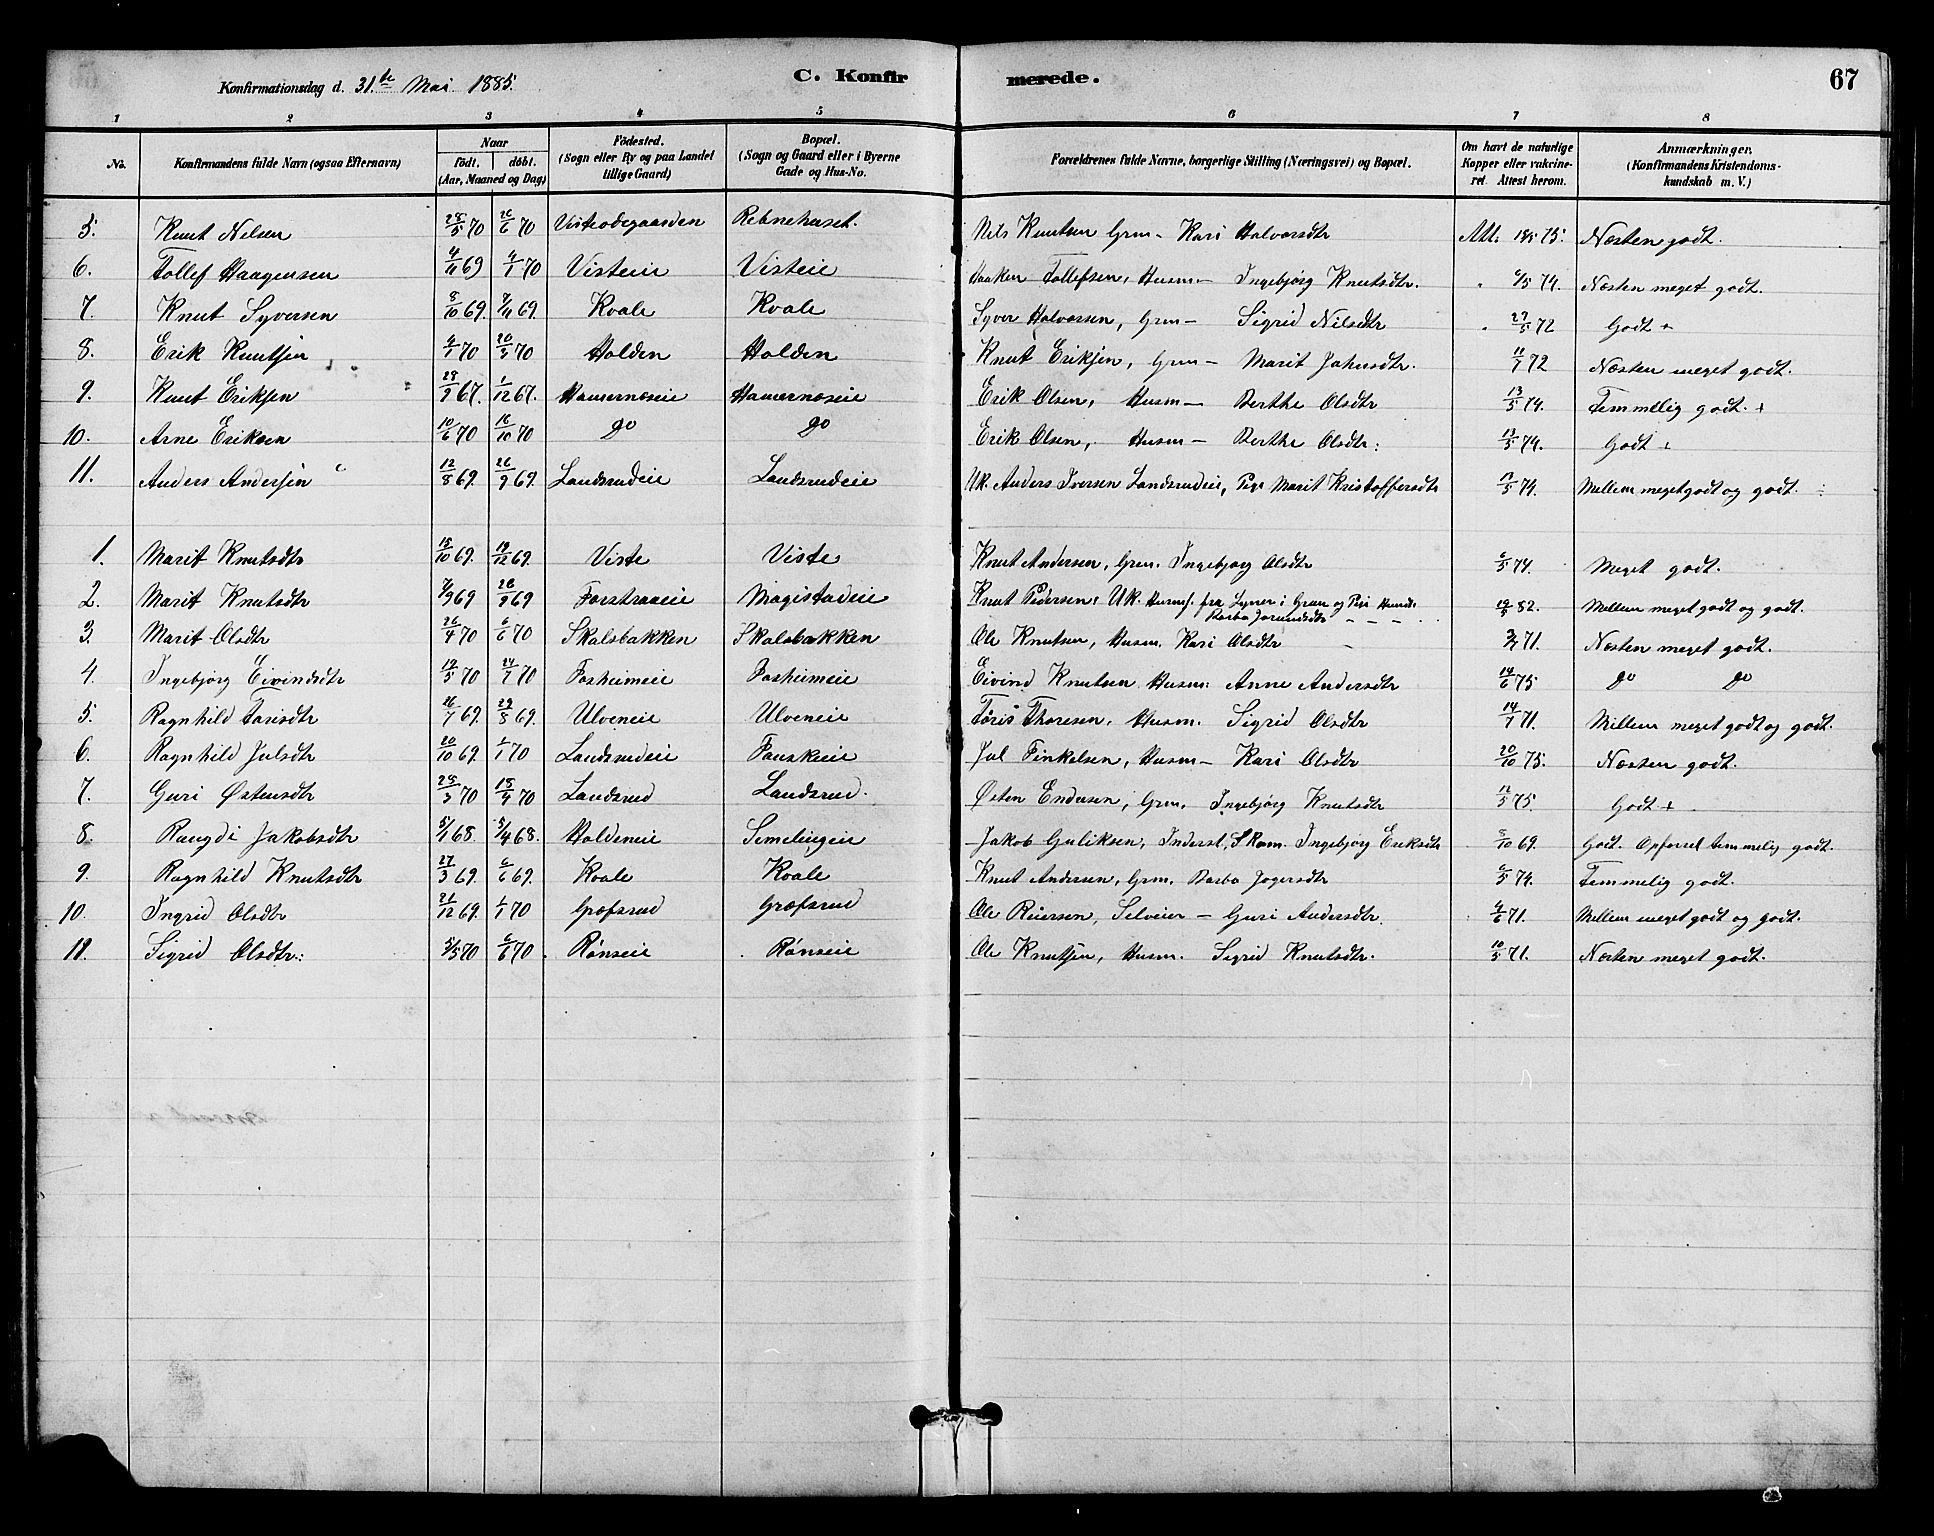 Konfirmationsdag d. 31.te Mai 1885. C. Konfirmerede. 67
1 2 3 4 5 6 7 8
No. Konfirmandens fulde Navn (ogsaa Efternavn) Naar födt. döbt. (Aar, Maaned og Dag) Födested. (Sogn eller By og paa Landet tillige Gaard) Bopæl. (Sogn og Gaard eller i Byerne Gade og Hus-No. Forældrenes fulde Navne, borgerlige Stilling (Næringsvei) og Bopæl. Om havt de naturlige Kopper eller vakcineret. Attest herom. Anmærkninger. (Konfirmandens Kristendomskundskab m. V.)
5. Knut Nilsen 28/5 70 26/6 70 Visteødegaarden Rebnehuset. Nils Knutsen Grm - Kari Halvorsdtr Att. 18/5 75. Næsten godt.
6. Tollef Haagensen 4/11 69 6/1 70 Visteie Visteie Haaken Tollefsen, Husm - Ingebjörg Knutsdtr. " 6/5 74. Næsten meget godt.
7. Knut Syversen 8/10 69. 7/11 69. Kvale Kvale Syver Halvorsen, Grm - Sigrid Nilsdtr " 27/5 72 Godt +
8. Erik Knutsen 4/1 70 20/2 70 Holden Holden Knut Eriksen, Grm - Marit Jahnsdtr. 11/7 72 Næsten meget godt.
9. Knut Eriksen 28/9 67. 1/12 67. Hamernæseie Hamernæseie Erik Olsen, Husm - Berthe Olsdtr 13/5 74. Temmelig godt. +
10. Arne Eriksen 10/6 70 16/10 70 do do Erik Olsen, Husm - Berthe Olsdtr: 13/5 74. Godt +
11. Anders Andersen 12/8 69. 26/9 69. Landsrudeie Landsrudeie Uk. Anders Iversen Landsrudeie, Pige Marit Kristoffersdtr 17/5 74. Mellem meget godt og godt.
1. Marit Knutsdtr 15/10 69. 19/12 69. Viste Viste Knut Andersen, Grm. Ingebjörg Olsdtr 6/5 74. Meget godt.
2. Marit Knutsdtr 7/9 69 26/9 69 Forstraaeie Magistadeie Knut Pedersen, Uk. Husms. fra Lyner i Gran og Pige Barbo Jorundsdtr 19/5 82. Mellem meget godt og godt.
3. Marit Olsdtr 26/4 70 6/6 70 Skalsbakken Skalsbakken Ole Knutsen, Husm. Kari Olsdtr 3/7 71. Næsten meget godt.
4. Ingebjörg Eivindsdtr 19/5 70 24/7 70 Fosheimeie Fosheimeie Eivind Knutsen Husm: Anne Andersdtr 14/6 75 do do
5. Ragnhild Torisdtr 26/7 69. 29/8 69. Ulveneie Ulveneie Töris Thoresen, Husm. Sigrid Olsdtr 14/7 71. Mellem meget godt og godt.
6. Ragnhild Julsdtr 20/10 69. 1/1 70 Landsrudeie Fauskeie Jul Finkelsen, Husm - Kari Olsdtr 20/10 75. Næsten godt.
7. Guri Østensdtr 28/3 70 18/4 70 Landsrud Landsrud. Østen Endresen, Grm. Ingebjörg Knutsdtr 12/5 75. Godt +
8. Rangdi Jakobsdtr 5/1 68. 5/4 68. Holdeneie Semelingeie Jakob Guliksen, Inderst, S Rom. Ingebjörg Eriksdtr 8/10 69. Godt. Opførsel temmelig godt.
9. Ragnhild Knutsdtr 27/3 69. 6/6 69. Kvale Kvale Knut Andersen, Grm. Barbo Jogersdtr 6/5 74. Temmelig godt.
10. Ingrid Olsdtr 26/12 69. 6/1 70 Græfsrud Græfsrud Ole Reiersen, Selveier - Guri Andersdtr. 4/6 71. Mellem meget godt og godt.
11. Sigrid Olsdtr: 5/5 70 6/6 70 Rønseie Rønseie Ole Knutsen, Husm. Sigrid Knutsdtr. 10/5 71. Næsten meget godt.